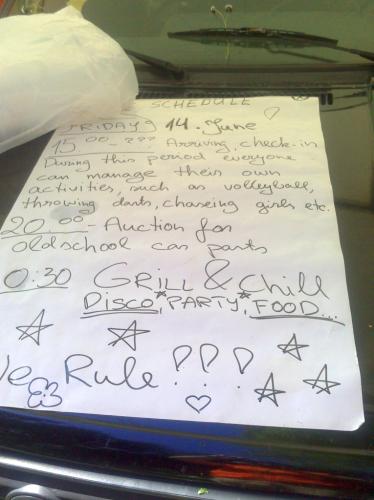 SCHEDULE !
FRIDAY, 14. June
15.00 - ??? Arriving, check-in
During this period everyone
can manage their own
activities, such as volleyball,
throwing darts, chaseing girls etc.
20.00 - Auction for
oldschool car parts
0:30 GRILL & Chill
DISCO, PARTY, FOOD...
We Rule !!!